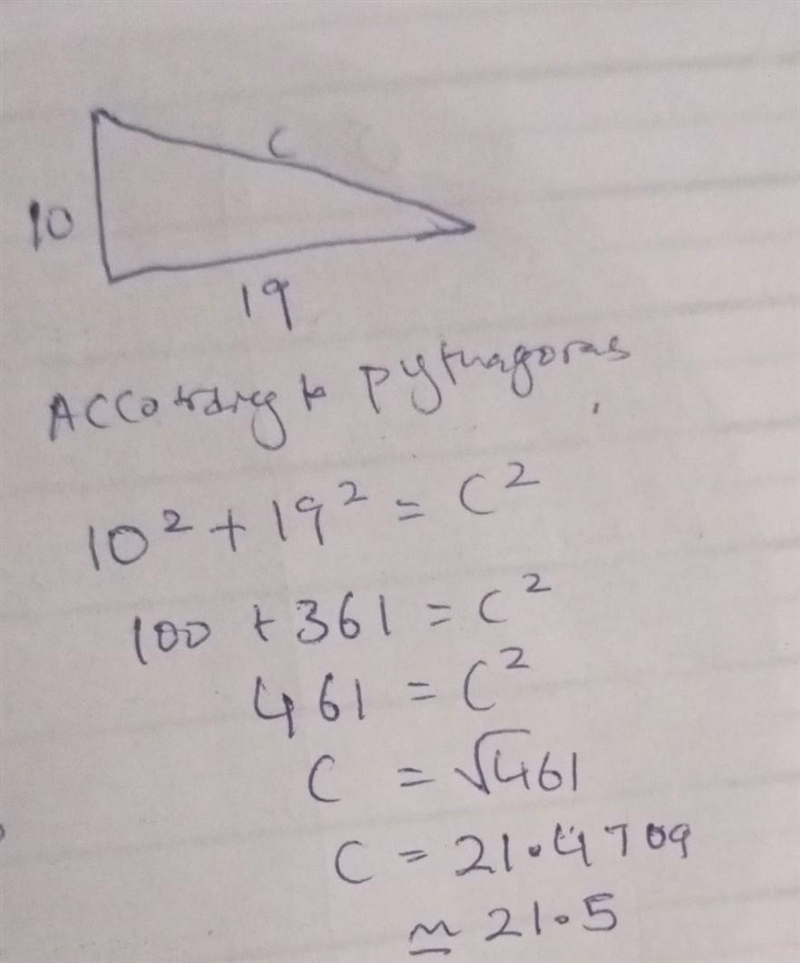 C
10
19
According to pythagoras
10² + 19² = C²
100 + 361 = C²
461 = C²
C = √461
C = 21.4709
≃ 21.5